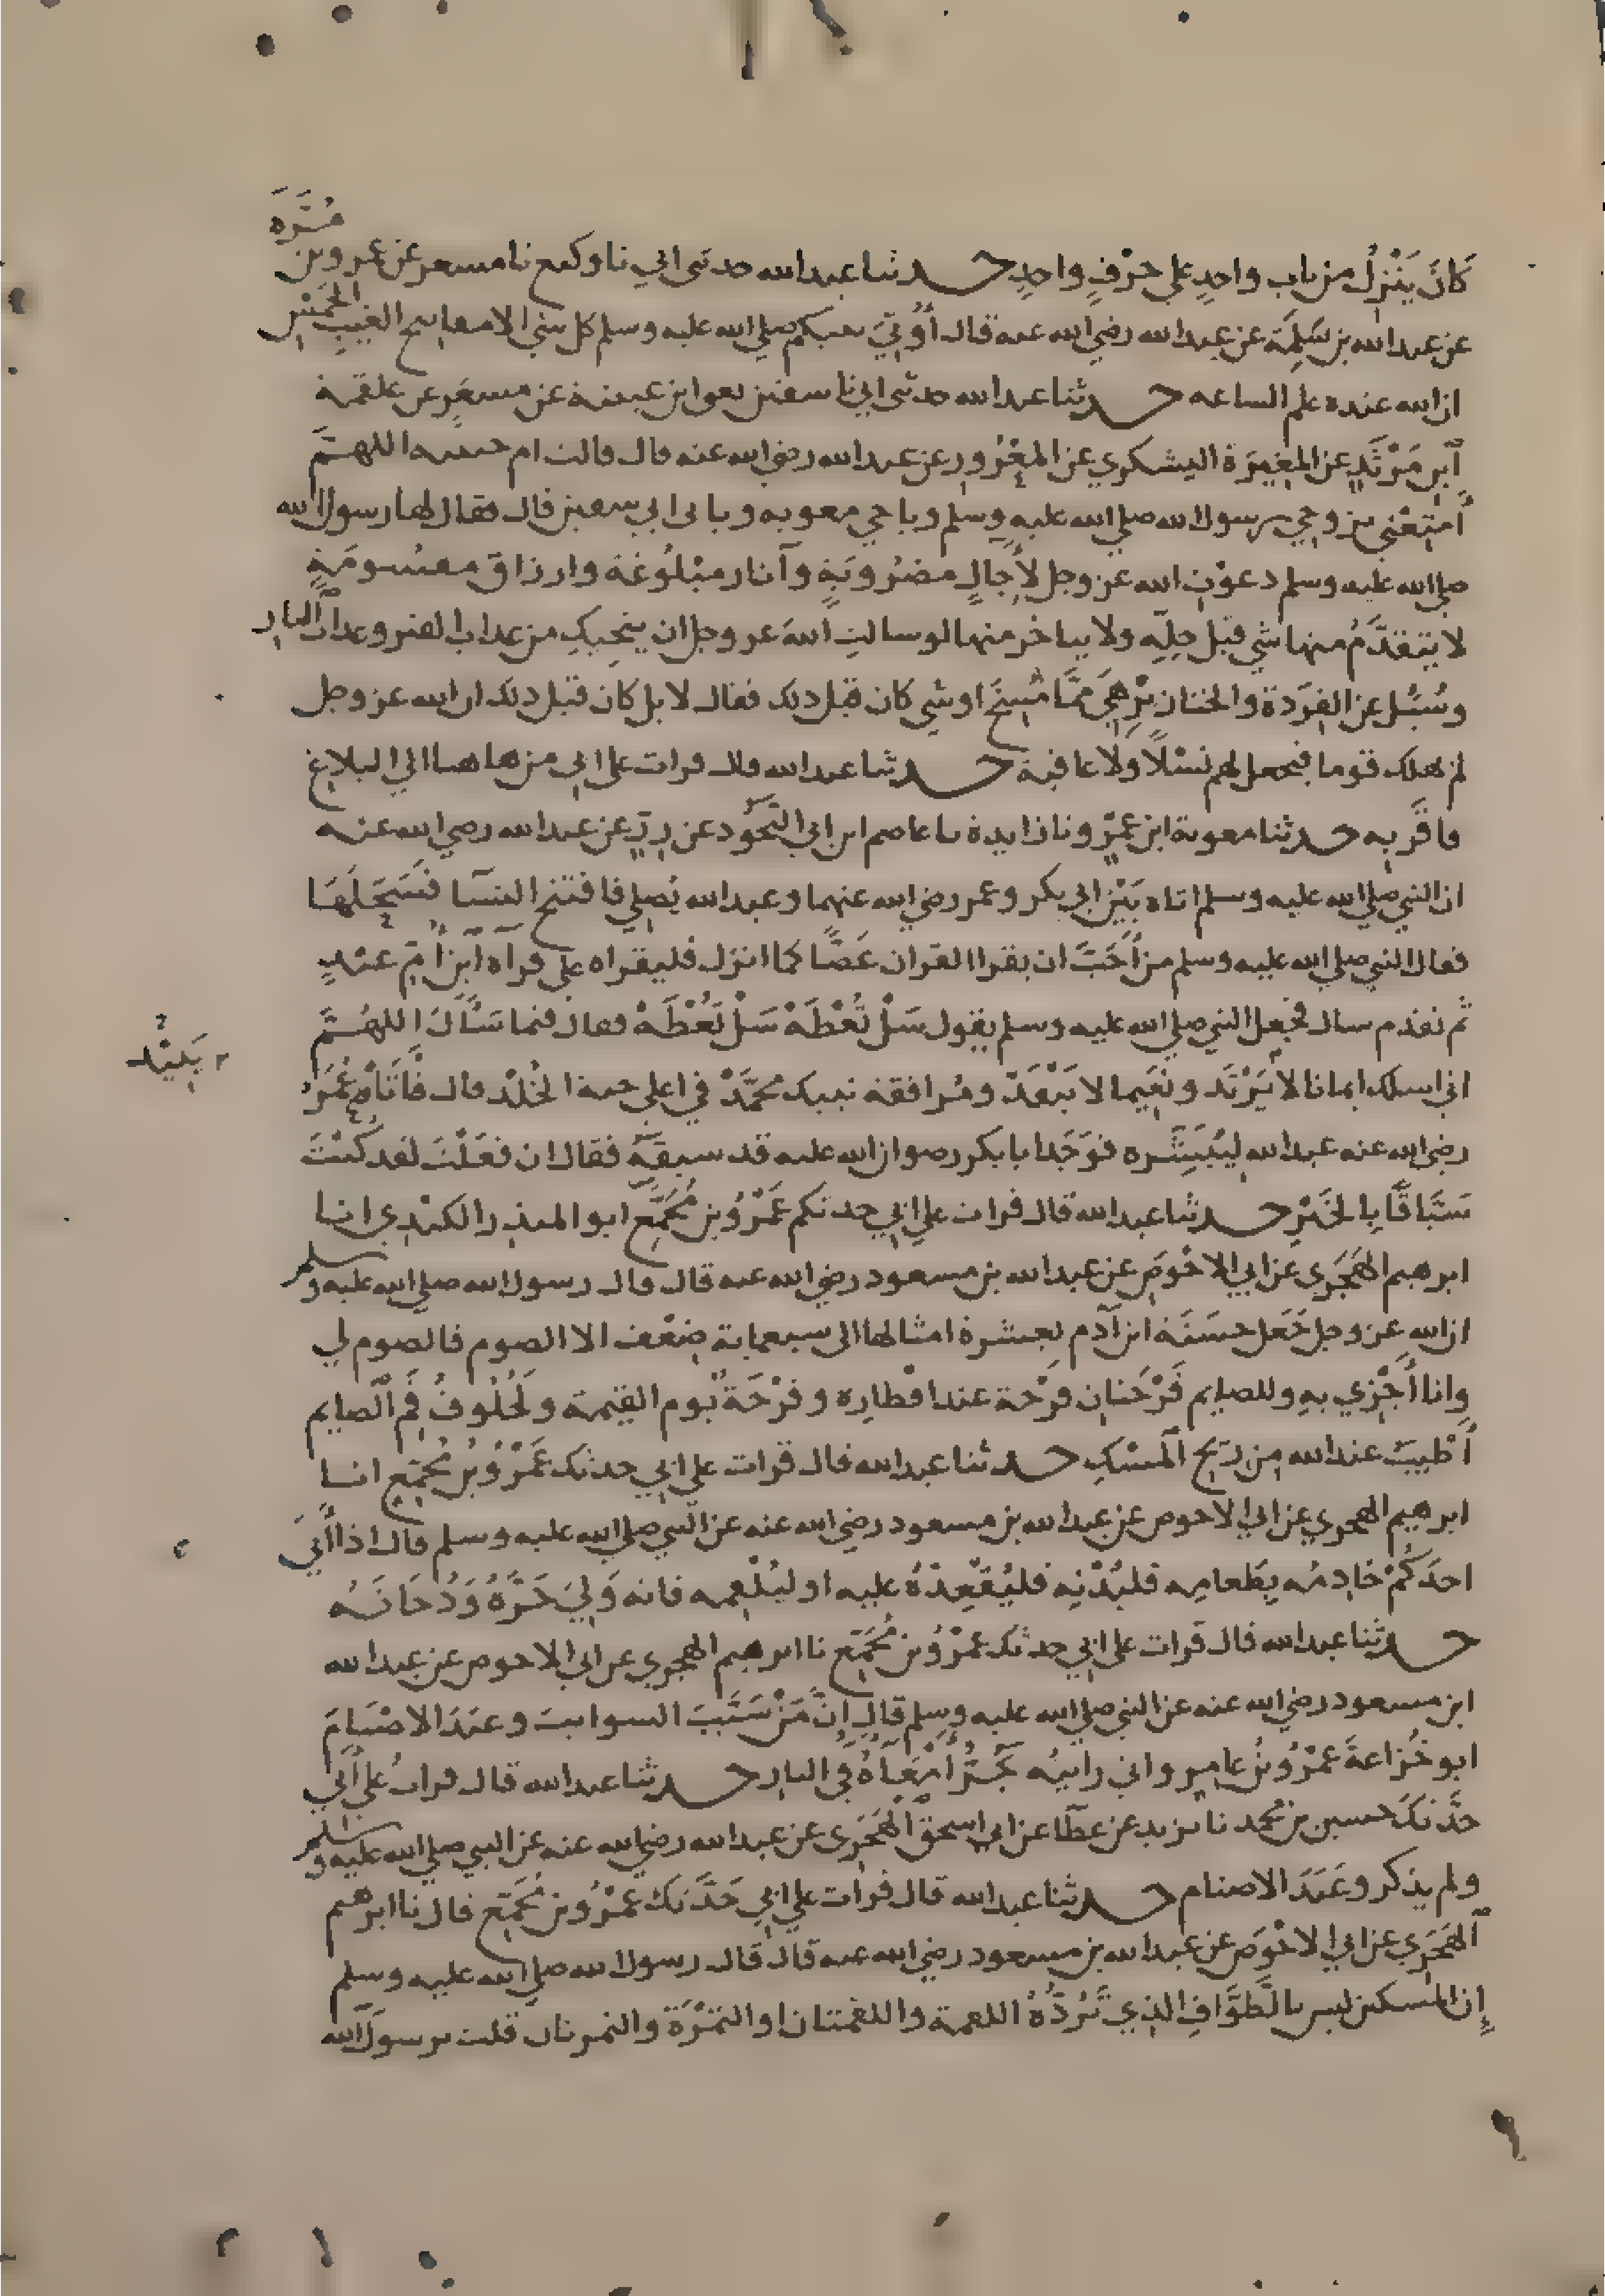 مُرَّةَ
كَانَ يَنْزِلُ من باب واحدٍ على حَرْفٍ واحدٍ حدثنا عبدالله حدثني ابي نا وكيع نا مسعر عن عمرو بن
عن عبدالله بن سَلِمَة عن عبدالله رضي الله عنه قال أُوتِيَ نبيكم صلى الله عليه وسلم كل شي الا مفاتيح الغيب الخَمْسِ
ان الله عنده علم الساعه حدثنا عبدالله حدثني ابي نا سفين يعني ابن عيينة عن مسعَرٍ عن علقمة
ابنِ مَرْثَدٍ عن المغيرَة اليشكري عن المعْرُورِ عن عبدالله رضي الله عنه قال قالت ام حبيبه اللهمَّ
أَمْتِعْني بزوجي رسول الله صلى الله عليه وسلم وباخي معويه وبابي ابي سفين قال فقال لها رسول الله
صلى الله عليه وسلم دعوْتِ الله عز وجل لأجالٍ مضرُوبَةٍ وآثار مبْلُوغة وارزاق مقسُومَةٍ
لا يتقدَّمُ منها شي قبل حِلِّهِ ولا يتاخر منها لو سالتِ الله عز وجل ان ينجيكِ من عذاب القبر وعذاب النارِ
وسُئل عن القِرَدة والخنازيرِ هِيَ مِمَّا مُسِخَ او شي كان قبل ذلك فقال لا بل كان قبل ذلك ان الله عز وجل
لم يهلك قوما فيجعل لهم نَسْلًا ولا عاقبة حدثنا عبدالله قال قرات على ابي من هاهنا الى البلاغ
فاقَرَّ به حدثنا معوية ابن عَمْرٍو نا زايدة نا عاصم ابن ابي النَّجُود عن زِرٍّ عن عبدالله رضي الله عنه
ان النبي صلى الله عليه وسلم اتاه بَيْنَ ابي بكر وعمر رضي الله عنهما وعبدالله يُصلي فافتتح النسَآ فسَجَلَهَا
فقال النبي صلى الله عليه وسلم من أَحَبَّ ان يقرا القران غَضًّا كما انزل فليقراه على قراة ابن أُمِّ عَبْدٍ
ثم تقدم سال فجعل النبي صلى الله عليه وسلم يقول سَلْ تُعْطَهْ سَلْ تُعْطَهْ فقال فيما سَأَلَ اللهُمَّ
اني اسلك ايمانا لا يَرْتَد ونَعيما لا يَنْفَدُ ومُرافقة نبيك محمَّدٍ في اعلى جنة الخُلْد قال فأتَاهُ عُمَرُ
يَبِيْد
رضي الله عنه عبدالله ليُبَشِّره فوَجَدَ ابا بكر رضوان الله عليه قد سبقَهُ فقال ان فعَلْتَ لقد كُنْتَ
سَبَّاقًا بالخَيْرِ حدثنا عبدالله قال قرات على ابي حدثكم عَمْرُو بن مُجَمِّع ابو المنذر الكنْدي انا
ابرهيم الهَجَري عن ابي الاحْوَصِ عن عبدالله بن مسعود رضي الله عنه قال قال رسول الله صلى الله عليه وسلم
ان الله عز وجل جَعَل حسَنَة ابن آدم بعشرة امثالها الى سبعماية ضِعْف الا الصوم فالصوم لي
وانا أَجْزِي بهِ وللصايم فَرْحَتانِ فرْحة عند افْطاره وفرْحَةٌ يوم القيمة ولَخُلُوفُ فَم الصايم
أطْيبُ عند الله مِن رِيح المسْكِ حدثنا عبدالله قال قرات على ابي حدثك عَمْرُو بن مُجَمِّع انا
ابرهيم الهجري عن ابي الاحوص عن عبدالله بن مسعود رضي الله عنه عن النبي صلى الله عليه وسلم قال اذا أَتَى
احدَكُمْ خادِمُه بِطَعامِه فليُدْنِه فليُقْعِدْهُ عليه او ليُلْقِمه فانه وَلِيَ حَرَّهُ وَدُخانَهُ
حدثنا عبدالله قال قرات على ابي حدثك عَمْرُو بن مُجَمِّع نا ابرهيم الهجري عن ابي الاحوص عن عبدالله
ابن مسعود رضي الله عنه عن النبي صلى الله عليه وسلم قال إنَّ مَنْ سَيَّبَ السوايبَ وعبَدَ الاصْنامَ
ابو خُزاعةَ عَمْرُو بنُ عامِر واني رايتُه يَجُرُّ أمْعَآهُ في النارِ حدثنا عبدالله قال قراتُ على أبي
حدَّثكَ حسين بن محمد نا يزيد عن عطآ عن ابي اسحق الهَجَري عن عبدالله رضي الله عنه عن النبي صلى الله عليه وسلم
ولم يذكر وعَبَدَ الاصنام حدثنا عبدالله قال قرات على ابي حَدَّثك عَمْرُو بن مُجَمِّع قال نا ابرهيم
الهَجَري عن ابي الاحْوَصِ عن عبدالله بن مسعود رضي الله عنه قال قال رسول الله صلى الله عليه وسلم
إن المسكين ليس بالطَّوَّافِ الذي تَرُدُّهُ اللقمة واللقمتان او التمْرَة والتمرتان قلت يرسول الله